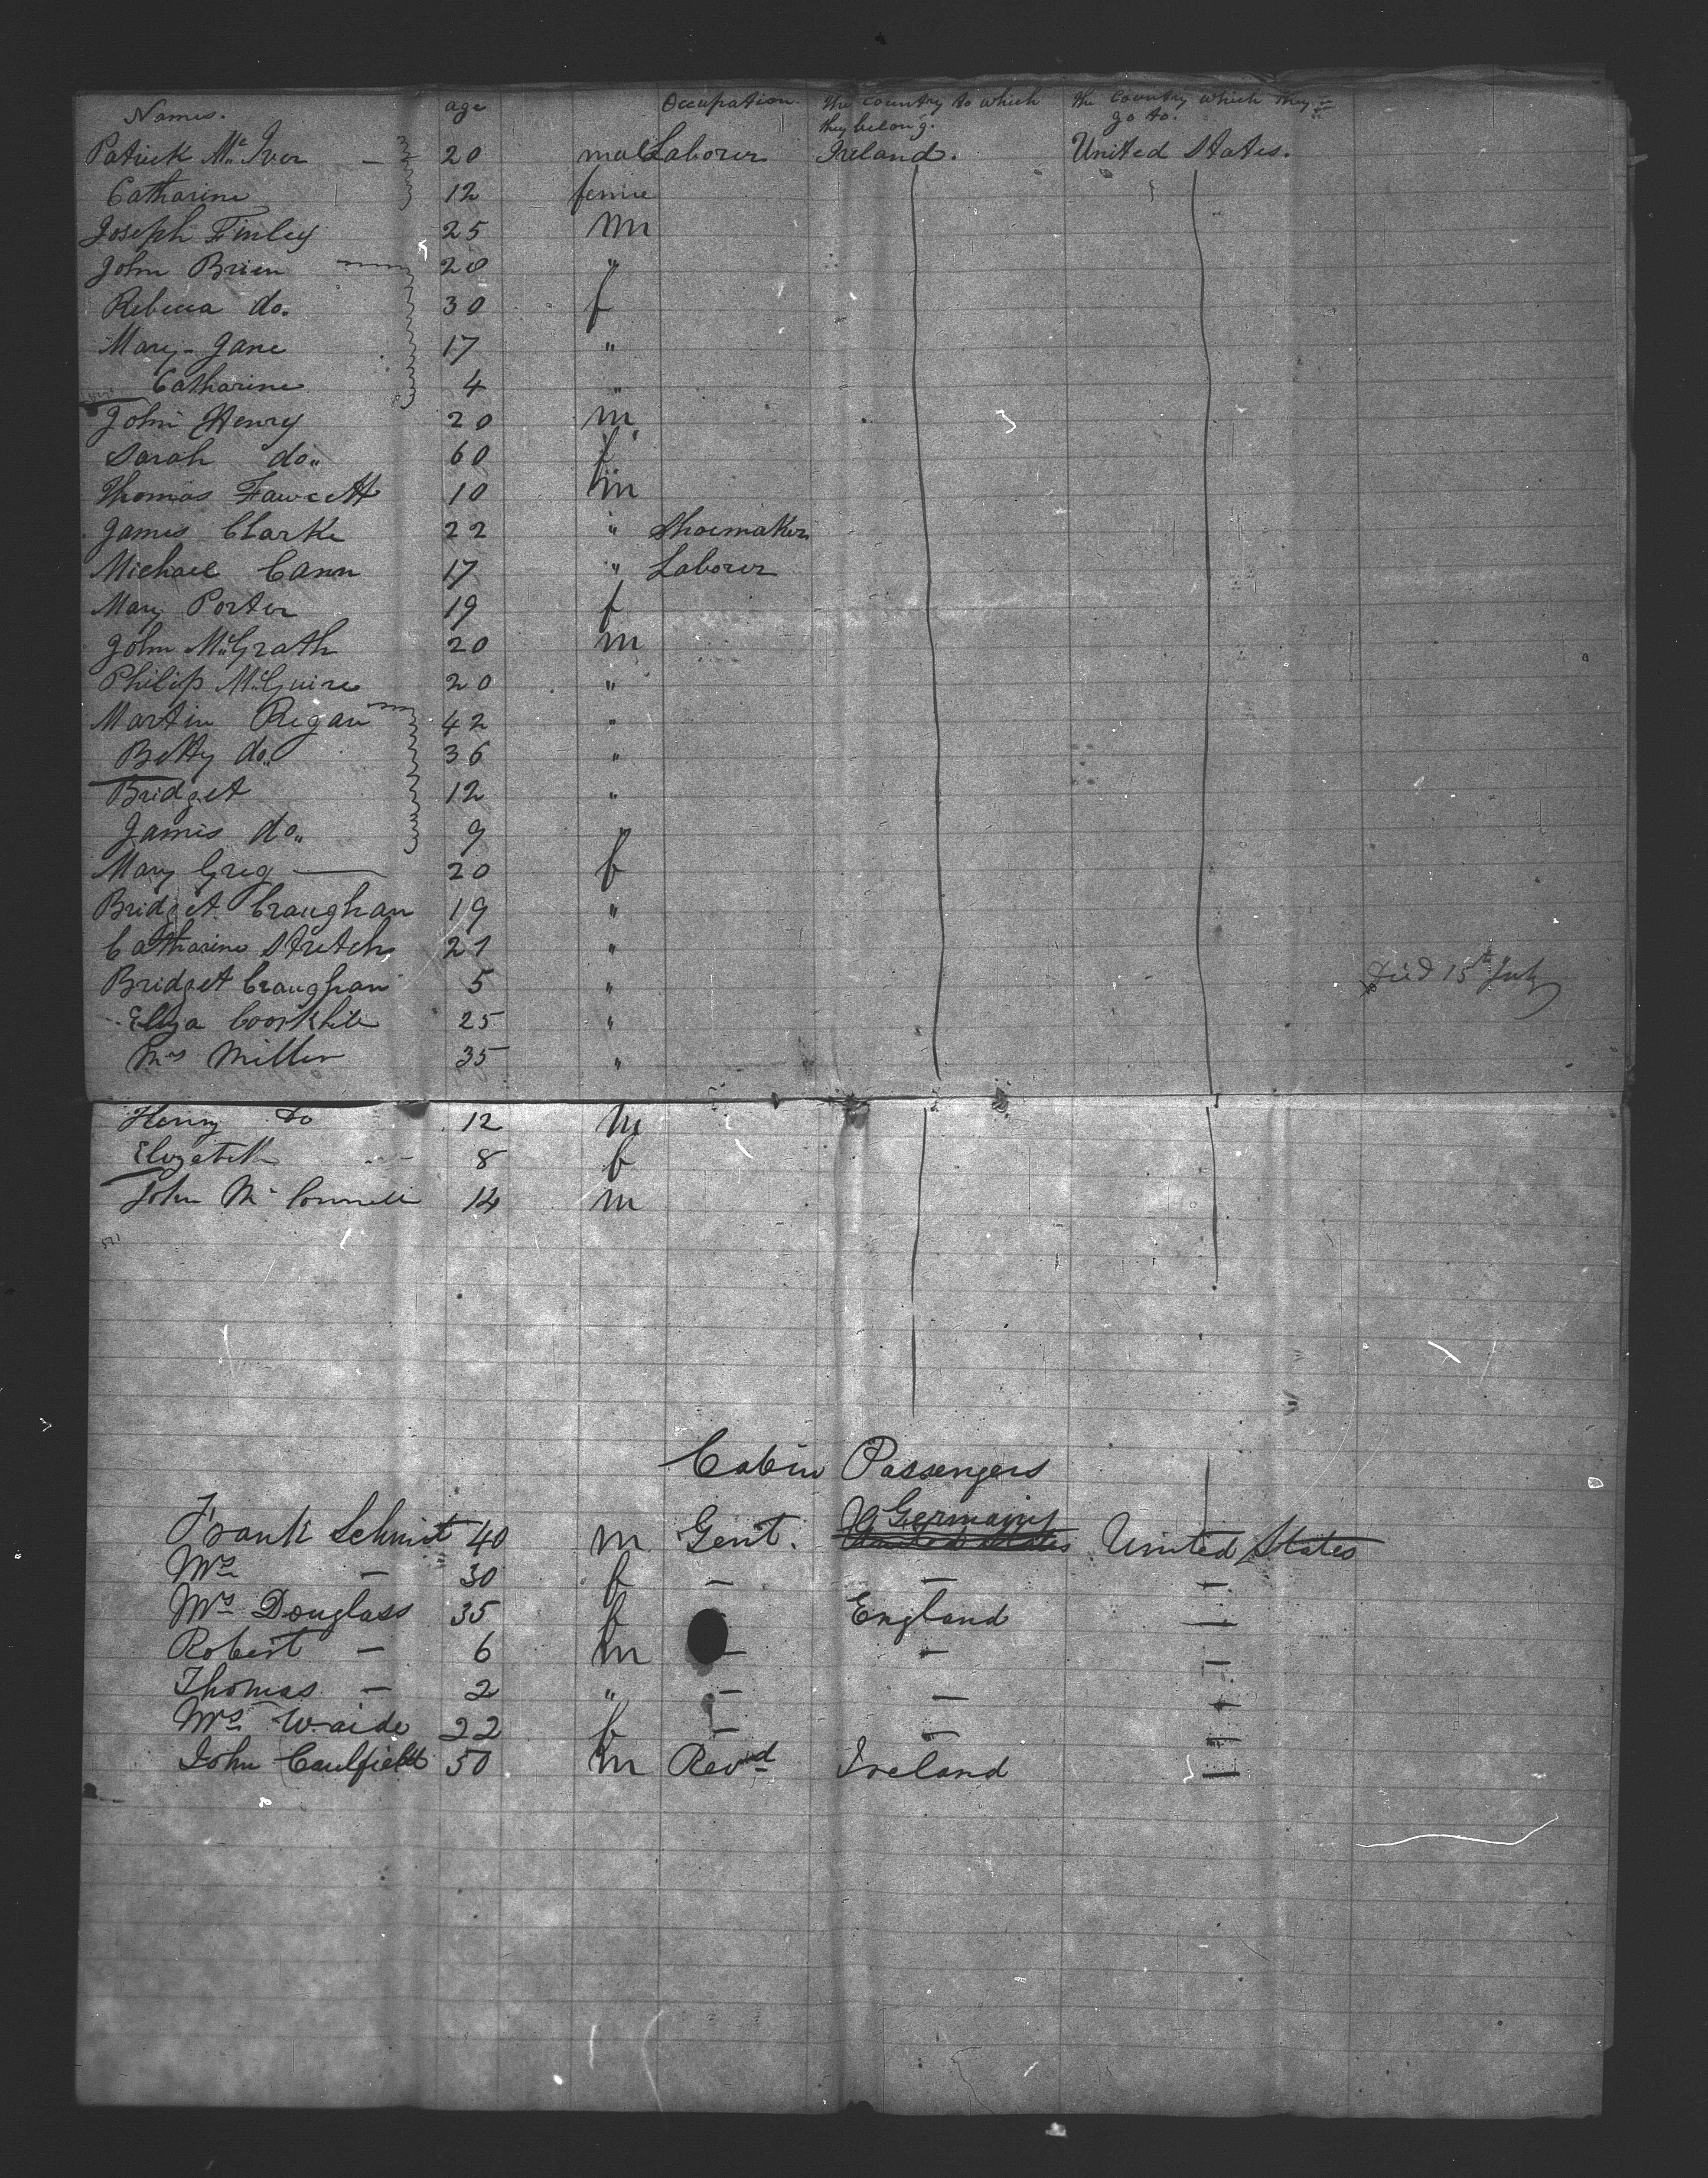 Names. age Occupation. The Country to which they belong. the Country which they go to.
Patrick Mc Iver — 20 male Laborer Ireland. United States.
Catharine 12 femie
Joseph Finley 25 m
John Brien 28 "
Rebecca do. 30 f
Mary-Jane 17 "
Catharine 4 "
John Henry 20 m
Sarah do.. 60 f
Thomas Fawcett 10 m
James Clarke 22 " Shoemaker
Michael Cann 17 " Laborer
Mary Porter 19 f
John McGrath 20 m
Philip McGuire 20 "
Martin Regan 42 "
Betty do.. 36 "
Bridget 12 "
James do.. 9 "
Mary Greg — 20 f
Bridget Craughan 19 "
Catharine Stretch 21 "
Bridget Craughan 5 " Died 15th July
Eliza 25 "
Mrs Miller 35 "
Henry Do 12 m
Elizateth 8 f
John Mc Connell 14 m
Cabin Passengers
Frank Schmidt 40 m Gent. Germany United States
Mrs — 30 f — — —
Mrs Douglass 35 f England —
Robert — 6 m — — —
Thomas — 2 " — — —
Mrs Waide 22 f — — —
John Caulfield 50 m Revd Ireland —